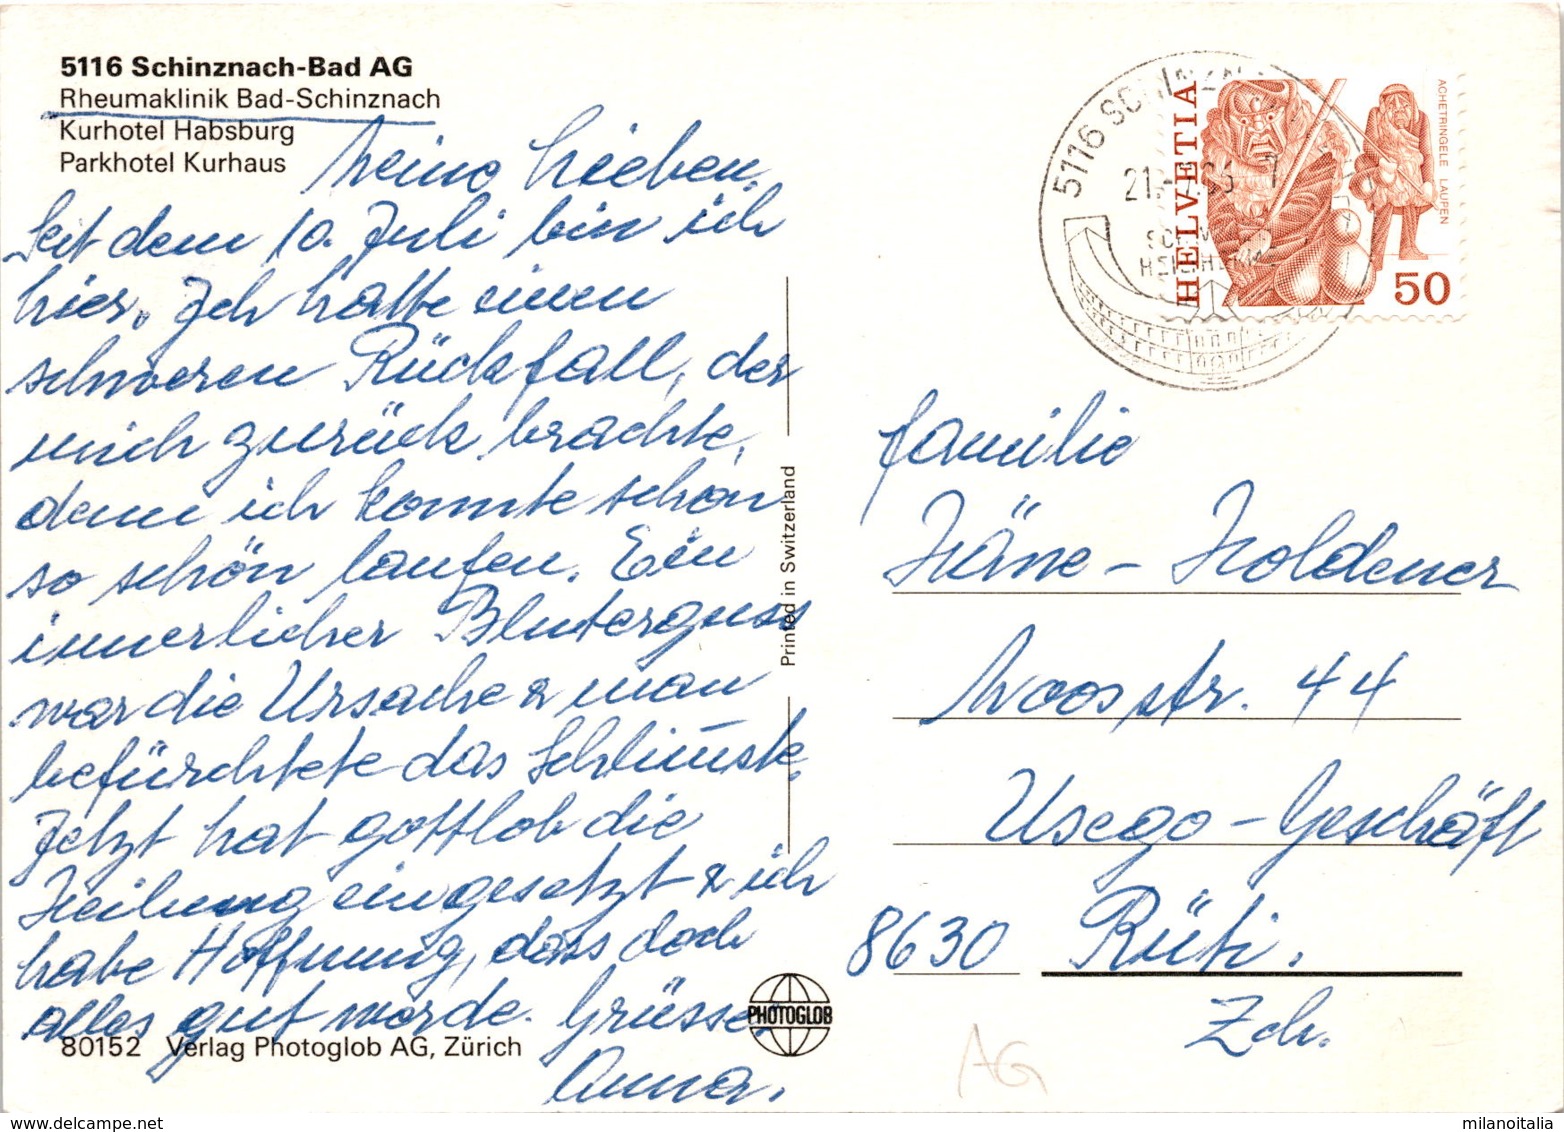 5116 Schinznach-Bad AG
Rheumaklinik Bad-Schinznach
Kurhotel Habsburg
Parkhotel Kurhaus
Meine Lieben,
Seit dem 10. Juli bin ich
hier. Ich hatte einen
schweren Rückfall, der
mich zurück brachte,
denn ich konnte schon
so schön laufen. Ein
innerlicher Bluterguss
war die Ursache & man
befürchtete das Schlimmste.
Jetzt hat gottlob die
Heilung eingesetzt & ich
habe Hoffnung, dass doch
alles gut werde. Grüsse
Anna.
80152 Verlag Photoglob AG, Zürich
Printed in Switzerland
PHOTOGLOB
5116 SCHINZN
HELVETIA
ACHETRINGELE LAUPEN
50
Familie
Häne-Holdener
Moosstr. 44
Usego-Geschäft
8630 Rüti.
Zch.
AG
milanoitalia